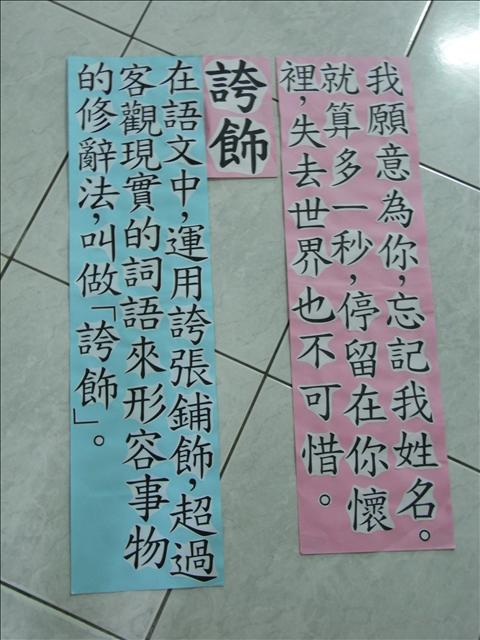 我願意為你，忘記我姓名。
就算多一秒，停留在你懷
裡，失去世界也不可惜。
誇飾
在語文中，運用誇張鋪飾，超過
客觀現實的詞語來形容事物
的修辭法，叫做「誇飾」。